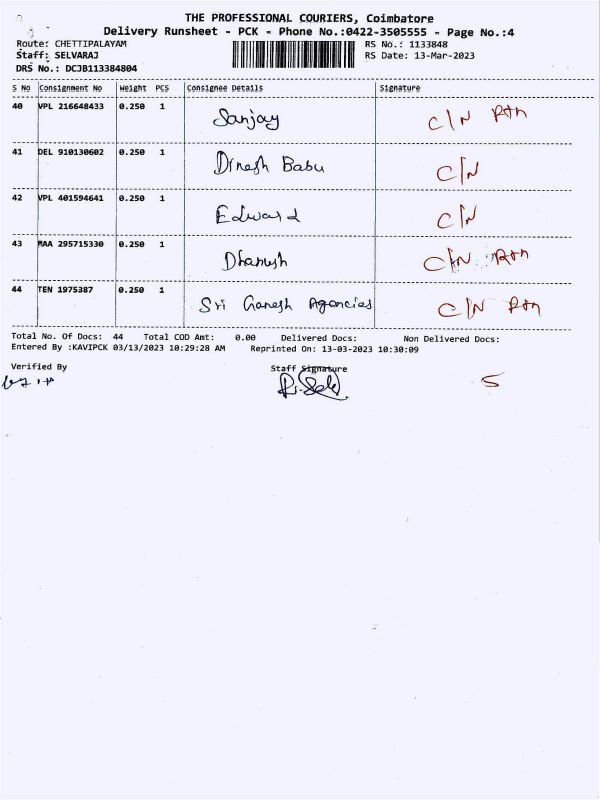 THE PROFESSIONAL COURIERS, Coimbatore
Delivery Runsheet - PCK - Phone No.:0422-3505555 - Page No.:4
Route: CHETTIPALAYAM RS No.: 1133848
Staff: SELVARAJ RS Date: 13-Mar-2023
DRS No.: DCJB113384804
S No Consignment No Weight PCS Consignee Details Signature
40 VPL 216648433 0.250 1 Sanjay C/N Rtn
41 DEL 910130602 0.250 1 Dinesh Babu C/N
42 VPL 401594641 0.250 1 Edward C/N
43 MAA 295715330 0.250 1 Dhanush C/N Rtn
44 TEN 1975387 0.250 1 Sri Ganesh Agencies C/N Rtn
Total No. Of Docs: 44 Total COD Amt: 0.00 Delivered Docs: Non Delivered Docs:
Entered By :KAVIPCK 03/13/2023 10:29:28 AM Reprinted On: 13-03-2023 10:30:09
Verified By Staff Signature
5